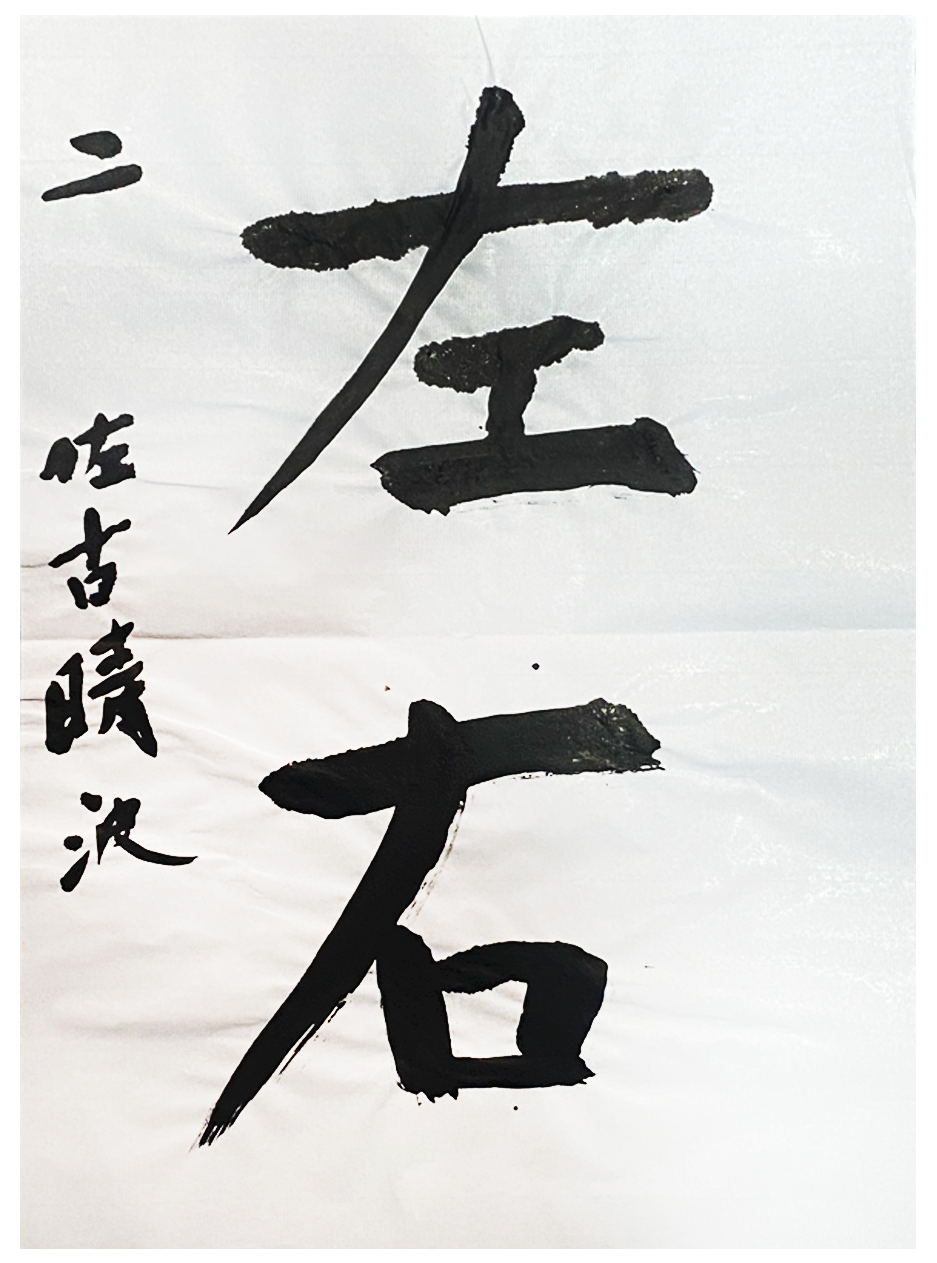 左右
二 佐古晴汲